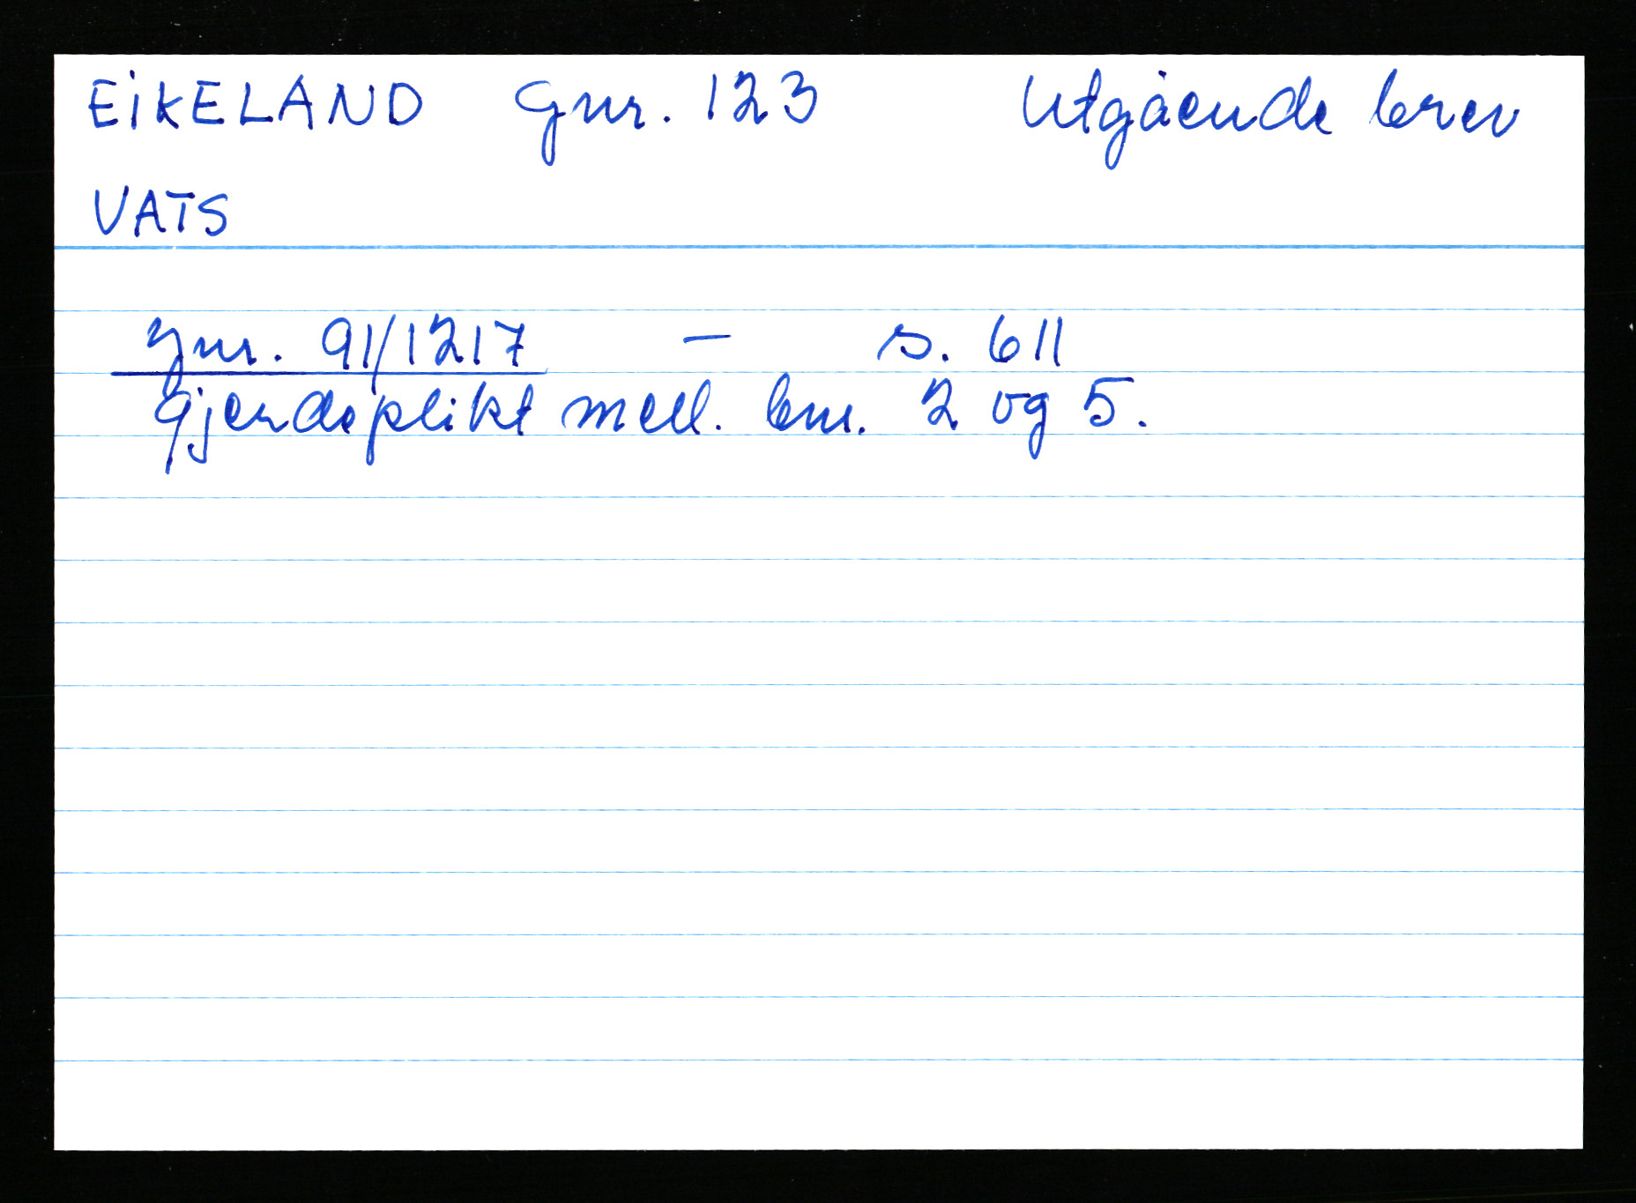 EIKELAND Gnr. 123 Utgående brev
VATS
Jnr. 91/1217 - s. 611
Gjerdeplikt mell. bnr. 2 og 5.